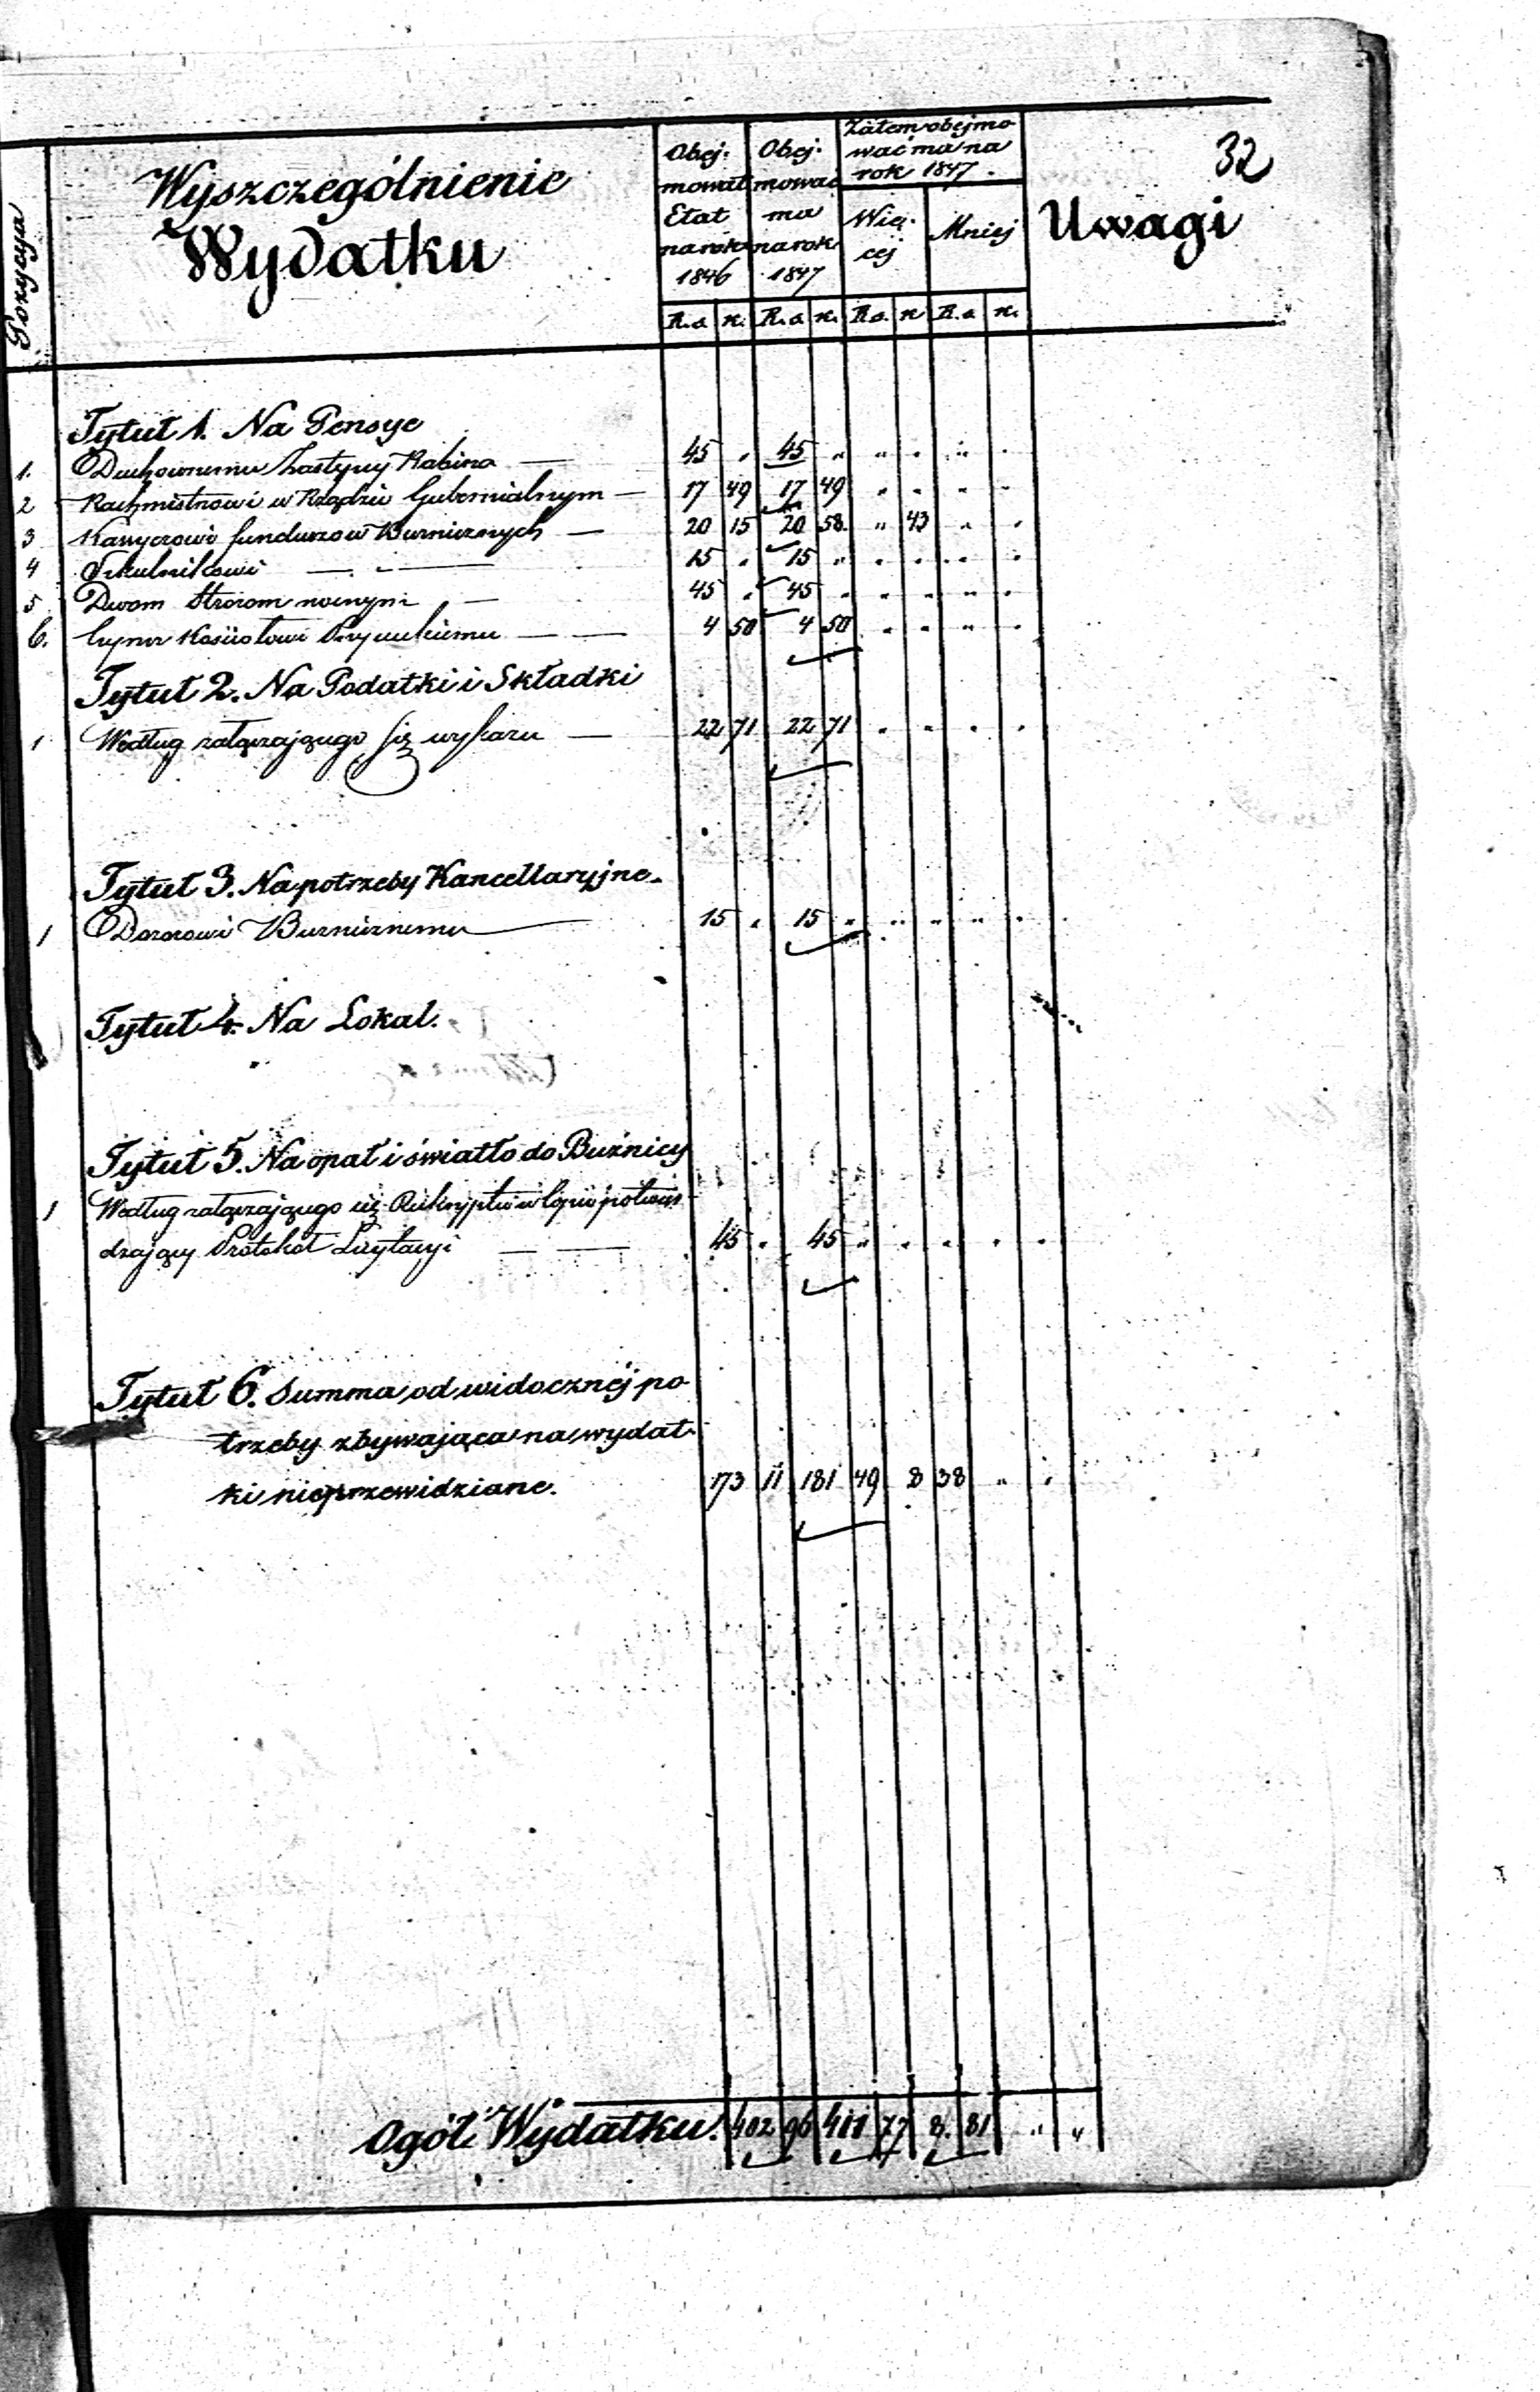 32
Pozycya
Wyszczególnienie
Wydatku
Obej-
mował
Etat
na rok
1846
Obej-
mować
ma
na rok
1847
Zatem obejmo
wać ma na
rok 1847.
Wię-
cej
Mniej
Uwagi
R.s. k. R.s. k. R.s. k. R.s. k.
Tytuł 1. Na Pensye
1. Duchownemu Zastępcy Rabina — 45 „ 45 „ „ „ „ „
2 Rachmistrzowi w Rządzie Gubernialnym — 17 49 17 49 „ „ „ „
3 Kassyerowi funduszow Bużnicznych — 20 15 20 58. „ 43 „ „
4 Szkulnikowi — 15 „ 15 „ „ „ „ „
5 Dwom Stróżom nocnym — 45 „ 45 „ „ „ „ „
6. Czynsz Kościołowi — — 4 50 4 50 „ „ „ „
Tytuł 2. Na Podatki i Składki
1 Według załączającego się wykazu — 22 71 22 71 „ „ „ „
Tytuł 3. Na potrzeby Kancellaryjne.
1 Dozorowi Bużnicznemu — 15 „ 15 „ „ „ „ „
Tytuł 4. Na Lokal.
Tytuł 5. Na opał i światło do Bużnicy
1 Według załączającego się Reskryptu w kopii potwier
dzający Protokół Licytacyi — — 45 „ 45 „ „ „ „ „
Tytuł 6. Summa od widocznéj po
trzeby zbywająca na wydat-
ki nieprzewidziane. 173 11 181 49 8 38 „ „
Ogół Wydatku. 402 96 411 77 8. 81 „ „